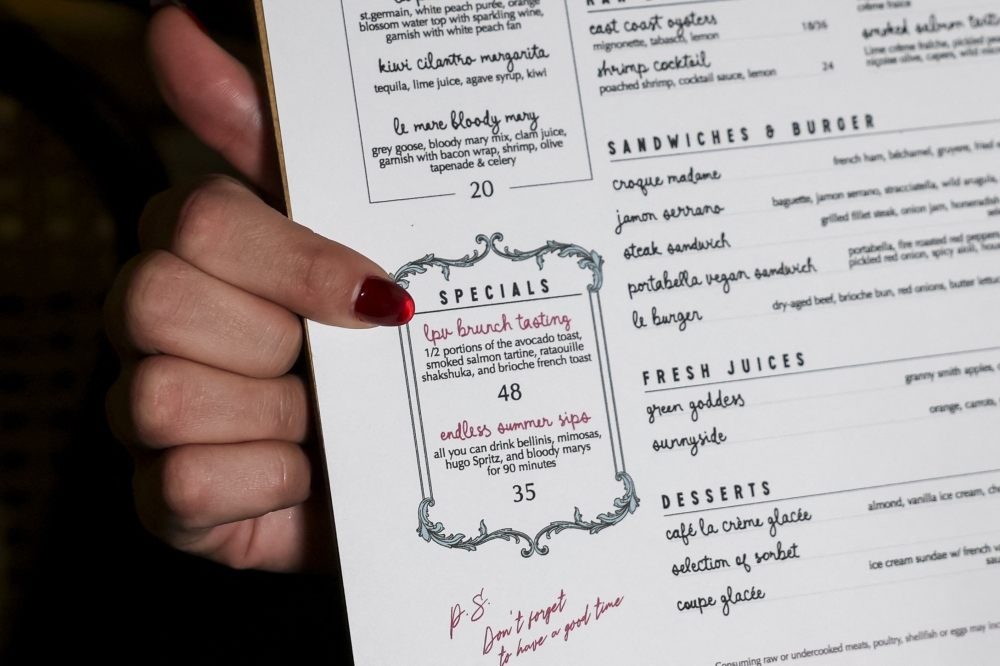 st.germain, white peach purée, orange
blossom water top with sparkling wine,
garnish with white peach fan
kiwi cilantro margarita
tequila, lime juice, agave syrup, kiwi
le mare bloody mary
grey goose, bloody mary mix, clam juice,
garnish with bacon wrap, shrimp, olive
tapenade & celery
20
SPECIALS
lpv brunch tasting
1/2 portions of the avocado toast,
smoked salmon tartine, rataouille
shakshuka, and brioche french toast
48
endless summer sips
all you can drink bellinis, mimosas,
hugo Spritz, and bloody marys
for 90 minutes
35
P.S.
Don't forget
to have a good time
east coast oysters 18/36
mignonette, tabasco, lemon
shrimp cocktail 24
poached shrimp, cocktail sauce, lemon
crème fraîche
smoked salmon
Lime crème fraîche, pickled
niçoise olive, capers, wild
SANDWICHES & BURGER
croque madame french ham, béchamel, gruyere, fried
jamon serrano baguette, jamon serrano, stracciatella, wild arugula,
steak sandwich grilled fillet steak, onion jam,
portabella vegan sandwich portabella, fire roasted red
pickled red onion, spicy aioli,
le burger dry-aged beef, brioche bun, red onions, butter
FRESH JUICES
green goddess granny smith apples,
sunnyside orange, carrots,
DESSERTS
café la crème glacée almond, vanilla ice cream,
selection of sorbet
coupe glacée ice cream sundae w/ french
Consuming raw or undercooked meats, poultry, shellfish or eggs may